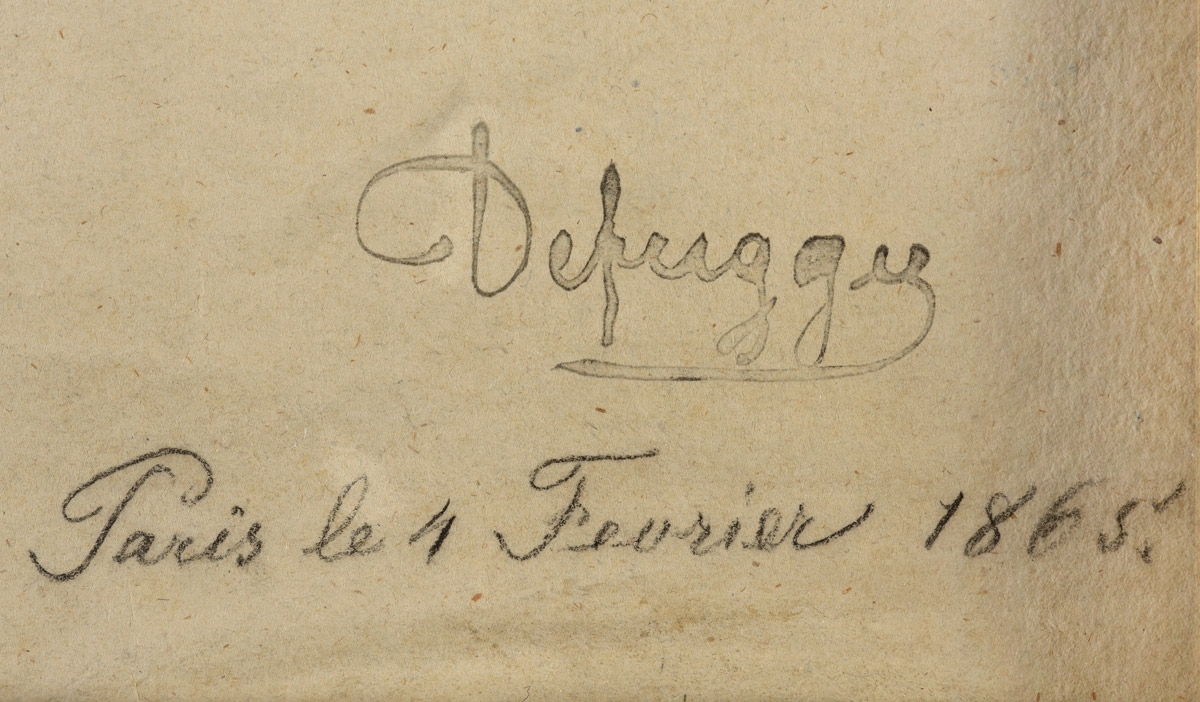 Defregger
Paris le 4 Fevrier 1865.